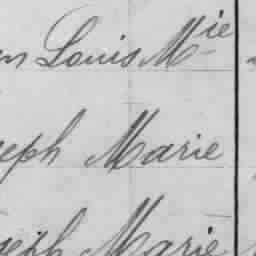 Louis Mie
seph Marie
seph Marie